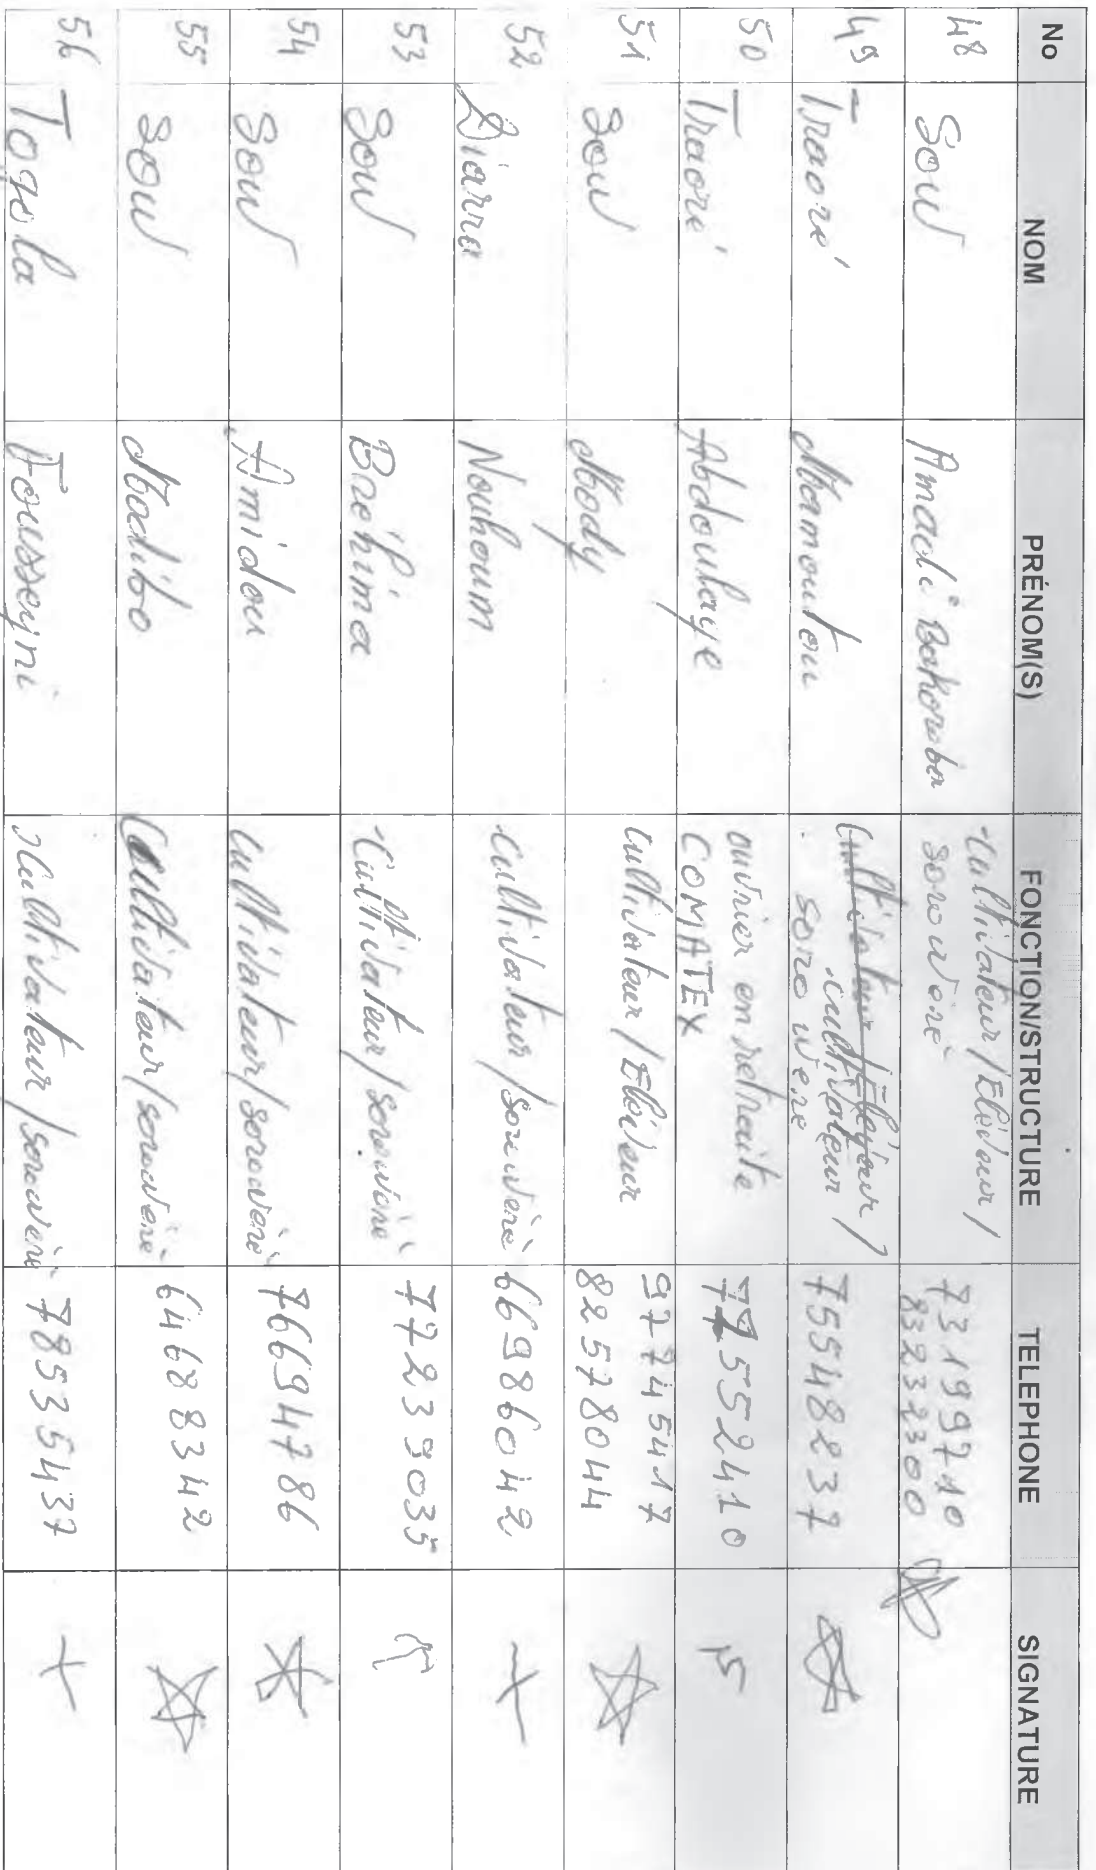 No NOM PRÉNOM(S) FONCTION/STRUCTURE TELEPHONE SIGNATURE
48 Sow Amadi Bakoroba Cultivateur/Eleveur/ 73199710
sorowèrè 83237300
49 Traoré Mamoutou Cultivateur/Eleveur/ 75548237
cultivateur/
sorowere
50 Traoré Abdoulaye ouvrier en retraite 77552410
COMATEX
51 Sow Mody cultivateur/Eleveur 97745417
82578044
52 Diarra Nouhoum cultivateur/sorowèrè 66986042
53 Sow Brehima Cultivateur/sorowèrè 77239035
54 Sow Amidou Cultivateur/sorowèrè 76694786
55 Sow Madibo Cultivateur/sorowèrè 64688342
56 Togola Fousseyni Cultivateur/sorowèrè 78535437